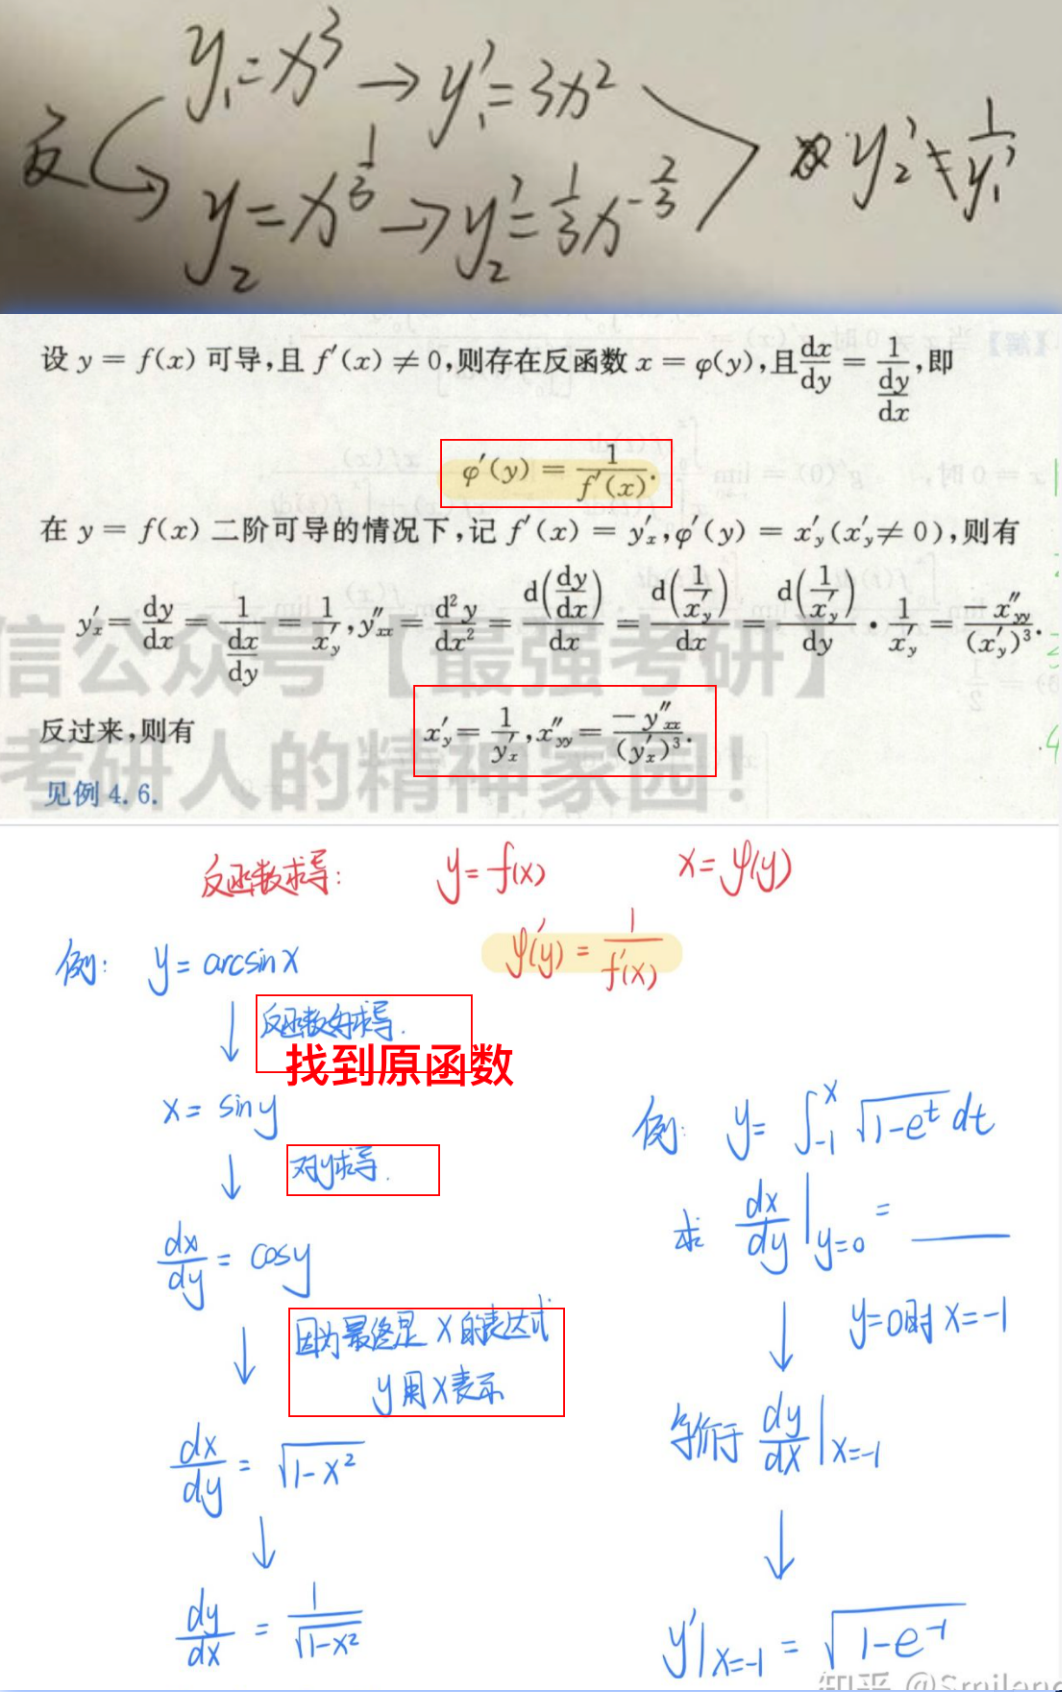 y₁=x³ → y₁'=3x²
反
y₂=x^(1/3) → y₂'=(1/3)x^(-2/3)
y₂'≠1/y₁'
设 y = f(x) 可导,且 f′(x) ≠ 0,则存在反函数 x = φ(y),且 dx/dy = 1/(dy/dx),即
φ′(y) = 1/f′(x).
在 y = f(x) 二阶可导的情况下,记 f′(x) = y′ₓ,φ′(y) = x′_y(x′_y ≠ 0),则有
y′ₓ = dy/dx = 1/(dx/dy) = 1/x′_y, y″ₓₓ = d²y/dx² = d(dy/dx)/dx = d(1/x′_y)/dx = d(1/x′_y)/dy · 1/x′_y = −x″_yy/(x′_y)³.
反过来,则有
x′_y = 1/y′ₓ, x″_yy = −y″ₓₓ/(y′ₓ)³.
见例 4.6.
信公众号【最强考研】
考研人的精神家园!
反函数求导: y=f(x) x=φ(y)
φ'(y) = 1/f'(x)
例: y= arcsinx
反函数好求导.
找到原函数
x= siny
对y求导.
dx/dy = cosy
因为最终是 x 的表达式
y 用 x 表示
dx/dy = √(1-x²)
dy/dx = 1/√(1-x²)
例: y= ∫₋₁ˣ √(1-eᵗ) dt
求 dx/dy |y=0 = ____
y=0时 x=-1
等价于 dy/dx |x=-1
y'|x=-1 = √(1-e⁻¹)
知乎 @Smilang